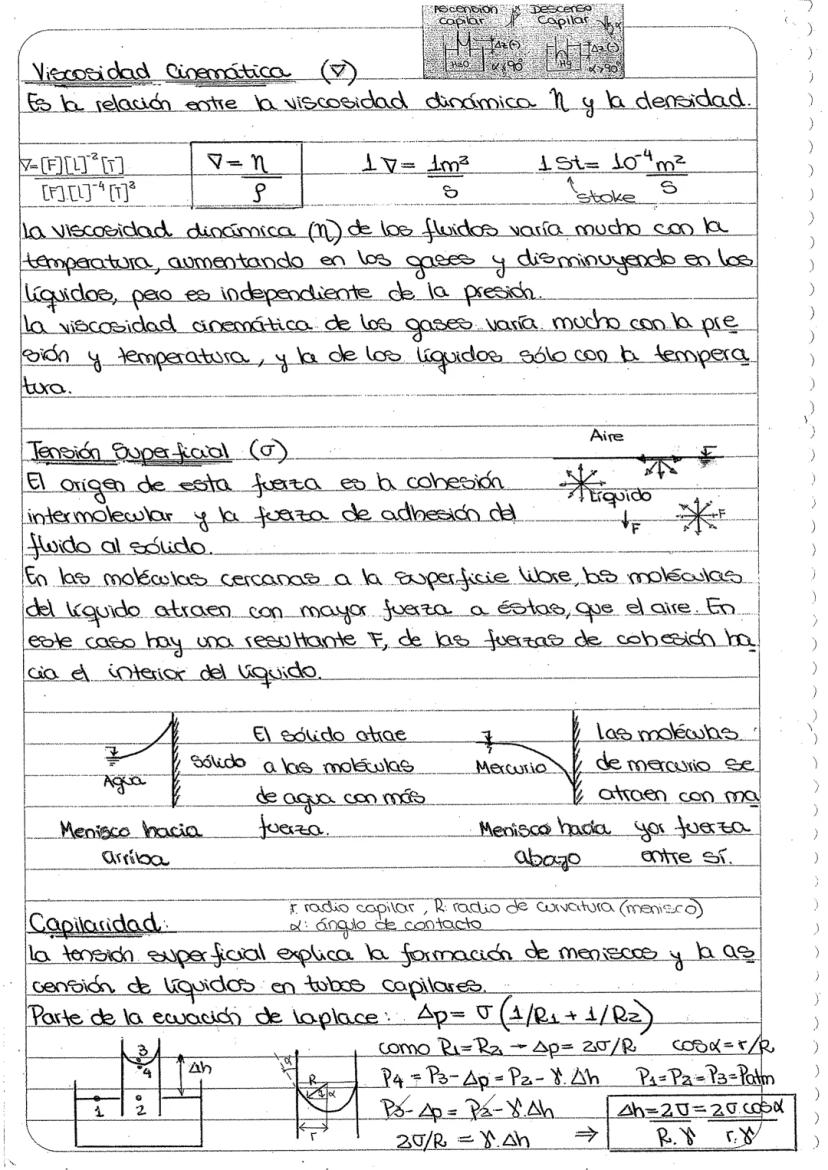 Ascención capilar
Descenso Capilar α
H2O Δz(-) α<90°
Hg Δz(-) α>90°
Viscosidad Cinemática (∇)
Es la relación entre la viscosidad dinámica η y la densidad.
∇=[F][L]⁻²[T] / [F].[L]⁻⁴[T]²
∇=η/ρ
1∇=1m²/s
1St=10⁻⁴m²/s
stoke
La viscosidad dinámica (η) de los fluidos varía mucho con la
temperatura, aumentando en los gases y disminuyendo en los
líquidos, pero es independiente de la presión.
La viscosidad cinemática de los gases varía mucho con la pre
sión y temperatura, y la de los líquidos sólo con la tempera
tura.
Tensión Superficial (σ)
Aire
F
Líquido
F
F
El origen de esta fuerza es la cohesión
intermolecular y la fuerza de adhesión del
fluido al sólido.
En las moléculas cercanas a la superficie libre, las moléculas
del líquido atraen con mayor fuerza a éstas, que el aire. En
este caso hay una resultante F, de las fuerzas de cohesión ha
cia el interior del líquido.
Agua
sólido
Menisco hacia
arriba
El sólido atrae
a las moléculas
de agua con más
fuerza.
Mercurio
Menisco hacia
abajo
Las moléculas
de mercurio se
atraen con ma
yor fuerza
entre sí.
r: radio capilar, R: radio de curvatura (menisco)
Capilaridad:
α: ángulo de contacto
La tensión superficial explica la formación de meniscos y la as
censión de líquidos en tubos capilares.
Parte de la ecuación de Laplace: Δp= σ (1/R1 + 1/R2)
3
4
Δh
1
2
α
R
α
r
como R1=R2 → Δp= 2σ/R cosα=r/R
P4 = P3-Δp=P2-γ.Δh P1=P2=P3=Patm
P3-Δp = P2-γ.Δh
2σ/R = γ.Δh ⇒ Δh=2σ/R.γ=2σ.cosα/r.γ